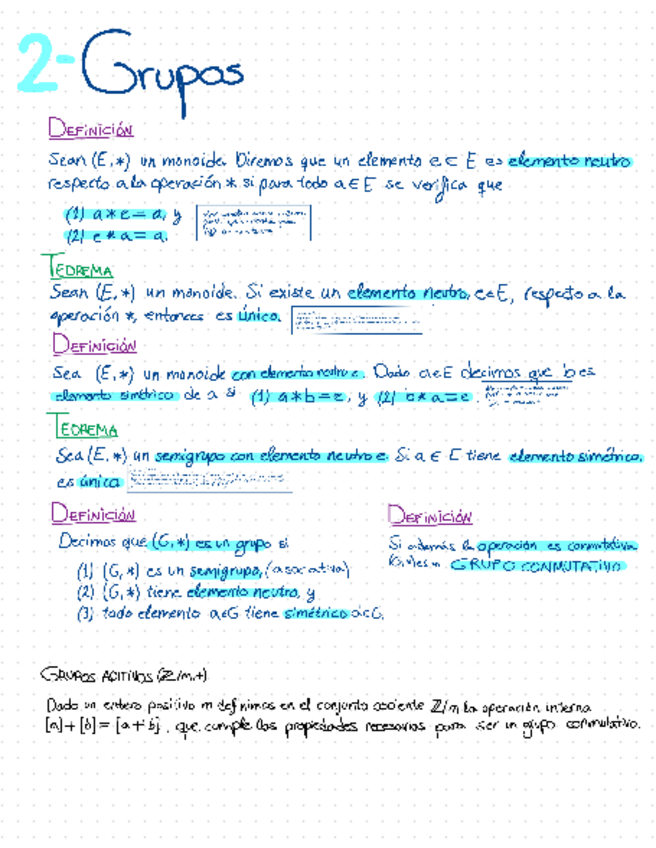 2- Grupos
DEFINICIÓN
Sean (E,*) un monoide. Diremos que un elemento e ∈ E es elemento neutro
respecto a la operación * si para todo a ∈ E se verifica que
(1) a * e = a, y
(2) e * a = a.
TEOREMA
Sean (E,*) un monoide. Si existe un elemento neutro, e∈E, respecto a la
operación *, entonces es único.
DEFINICIÓN
Sea (E,*) un monoide con elemento neutro e. Dado a∈E decimos que b es
elemento simétrico de a si (1) a*b=e, y (2) b*a=e
TEOREMA
Sea (E,*) un semigrupo con elemento neutro e. Si a ∈ E tiene elemento simétrico,
es única
DEFINICIÓN
Decimos que (G,*) es un grupo si
(1) (G,*) es un semigrupo, (asocativa)
(2) (G,*) tiene elemento neutro, y
(3) todo elemento a∈G tiene simétrico ∈G.
DEFINICIÓN
Si además la operación es conmutativa
GRUPO CONMUTATIVO
GRUPOS ADITIVOS (Z/m,+)
Dado un entero positivo m definimos en el conjunto cociente Z/m la operación interna
[a]+[b]=[a+b], que cumple las propiedades necesarias para ser un grupo conmutativo.